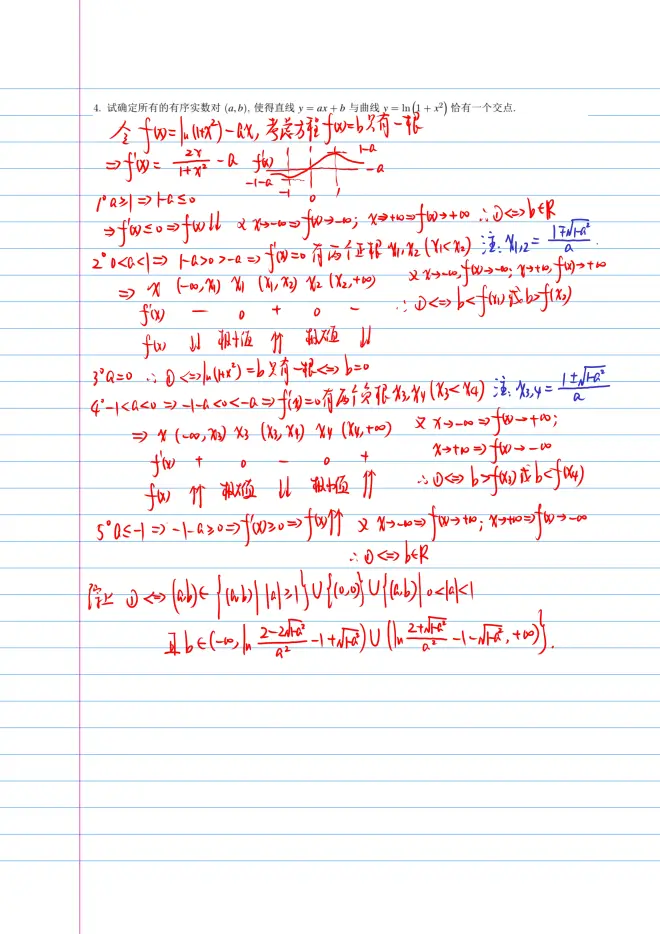 4. 试确定所有的有序实数对 (a, b), 使得直线 y = ax + b 与曲线 y = ln(1 + x²) 恰有一个交点.
令 f(x)=ln(1+x²)-ax, 考虑方程 f(x)=b 只有一根
⇒ f'(x)= 2x/(1+x²) - a f'(x) 1-a -a -1-a -1 0 1
1° a≥1 ⇒ 1-a≤0
⇒ f'(x)≤0 ⇒ f(x)↓↓ 又 x→-∞ ⇒ f(x)→-∞; x→+∞ ⇒ f(x)→+∞ ∴①<=> b∈R
2° 0<a<1 ⇒ 1-a>0>-a ⇒ f'(x)=0 有两个正根 x₁,x₂ (x₁<x₂) 注: x₁,₂ = (1∓√(1-a²))/a.
⇒ x (-∞,x₁) x₁ (x₁,x₂) x₂ (x₂,+∞) 又 x→-∞, f(x)→-∞; x→+∞, f(x)→+∞
f'(x) - 0 + 0 - ∴①<=> b<f(x₁) 或 b>f(x₂)
f(x) ↓↓ 极小值 ↑↑ 极大值 ↓↓
3° a=0 ∴①<=> ln(1+x²)=b 只有一根 <=> b=0
4° -1<a<0 ⇒ -1-a<0<-a ⇒ f'(x)=0 有两个负根 x₃,x₄ (x₃<x₄) 注: x₃,₄ = (1±√(1-a²))/a
⇒ x (-∞,x₃) x₃ (x₃,x₄) x₄ (x₄,+∞) 又 x→-∞ ⇒ f(x)→+∞;
x→+∞ ⇒ f(x)→-∞
f'(x) + 0 - 0 +
f(x) ↑↑ 极大值 ↓↓ 极小值 ↑↑ ∴①<=> b>f(x₃) 或 b<f(x₄)
5° a≤-1 ⇒ -1-a≥0 ⇒ f'(x)≥0 ⇒ f(x)↑↑ 又 x→-∞ ⇒ f(x)→+∞; x→+∞ ⇒ f(x)→-∞
∴①<=> b∈R
综上 ①<=> (a,b)∈{(a,b)| |a|≥1}∪{(0,0)}∪{(a,b)| 0<|a|<1
且 b∈(-∞, ln (2-2√(1-a²))/a² -1+√(1-a²))∪(ln (2+√(1-a²))/a² -1-√(1-a²), +∞)}.